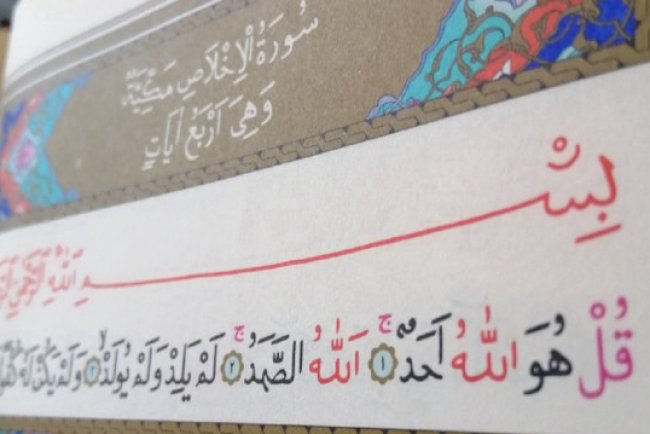 سُورَةُ الْاِخْلَاصِ مَكِّيَّةٌ
وَهِيَ اَرْبَعُ اٰيَاتٍ
بِسْمِ اللّٰهِ الرَّحْمٰنِ
قُلْ هُوَ اللّٰهُ اَحَدٌۚ ١ اَللّٰهُ الصَّمَدُۚ ٢ لَمْ يَلِدْ وَلَمْ يُولَدْۙ ٣ وَلَمْ يَكُنْ لَهُ